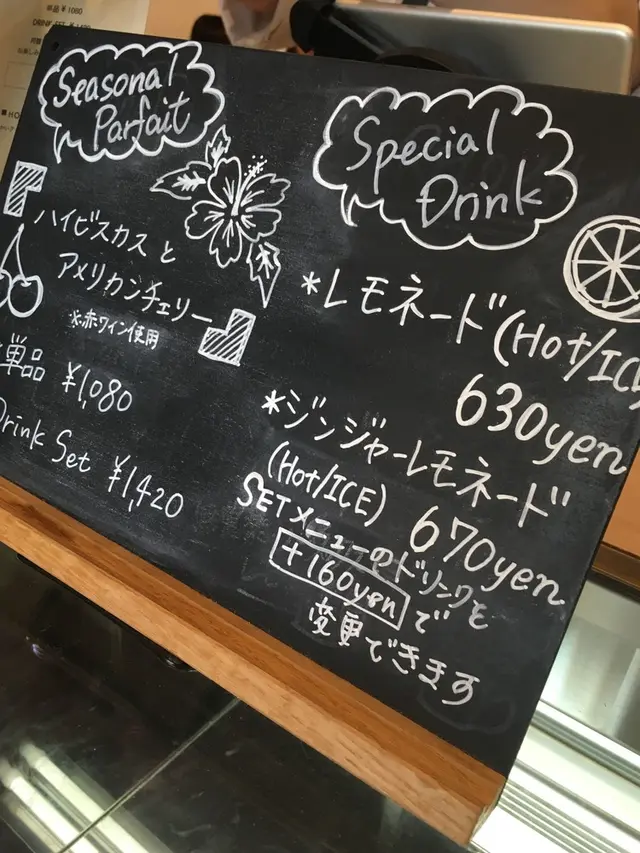 単品 ¥1080
Seasonal
Parfait
ハイビスカスと
アメリカンチェリー
※赤ワイン使用
単品 ¥1,080
Drink Set ¥1,420
Special
Drink
*レモネード(Hot/IC
630yen
*ジンジャーレモネード
(Hot/ICE) 670yen
SETメニューのドリンクを
+160yenで
変更できます